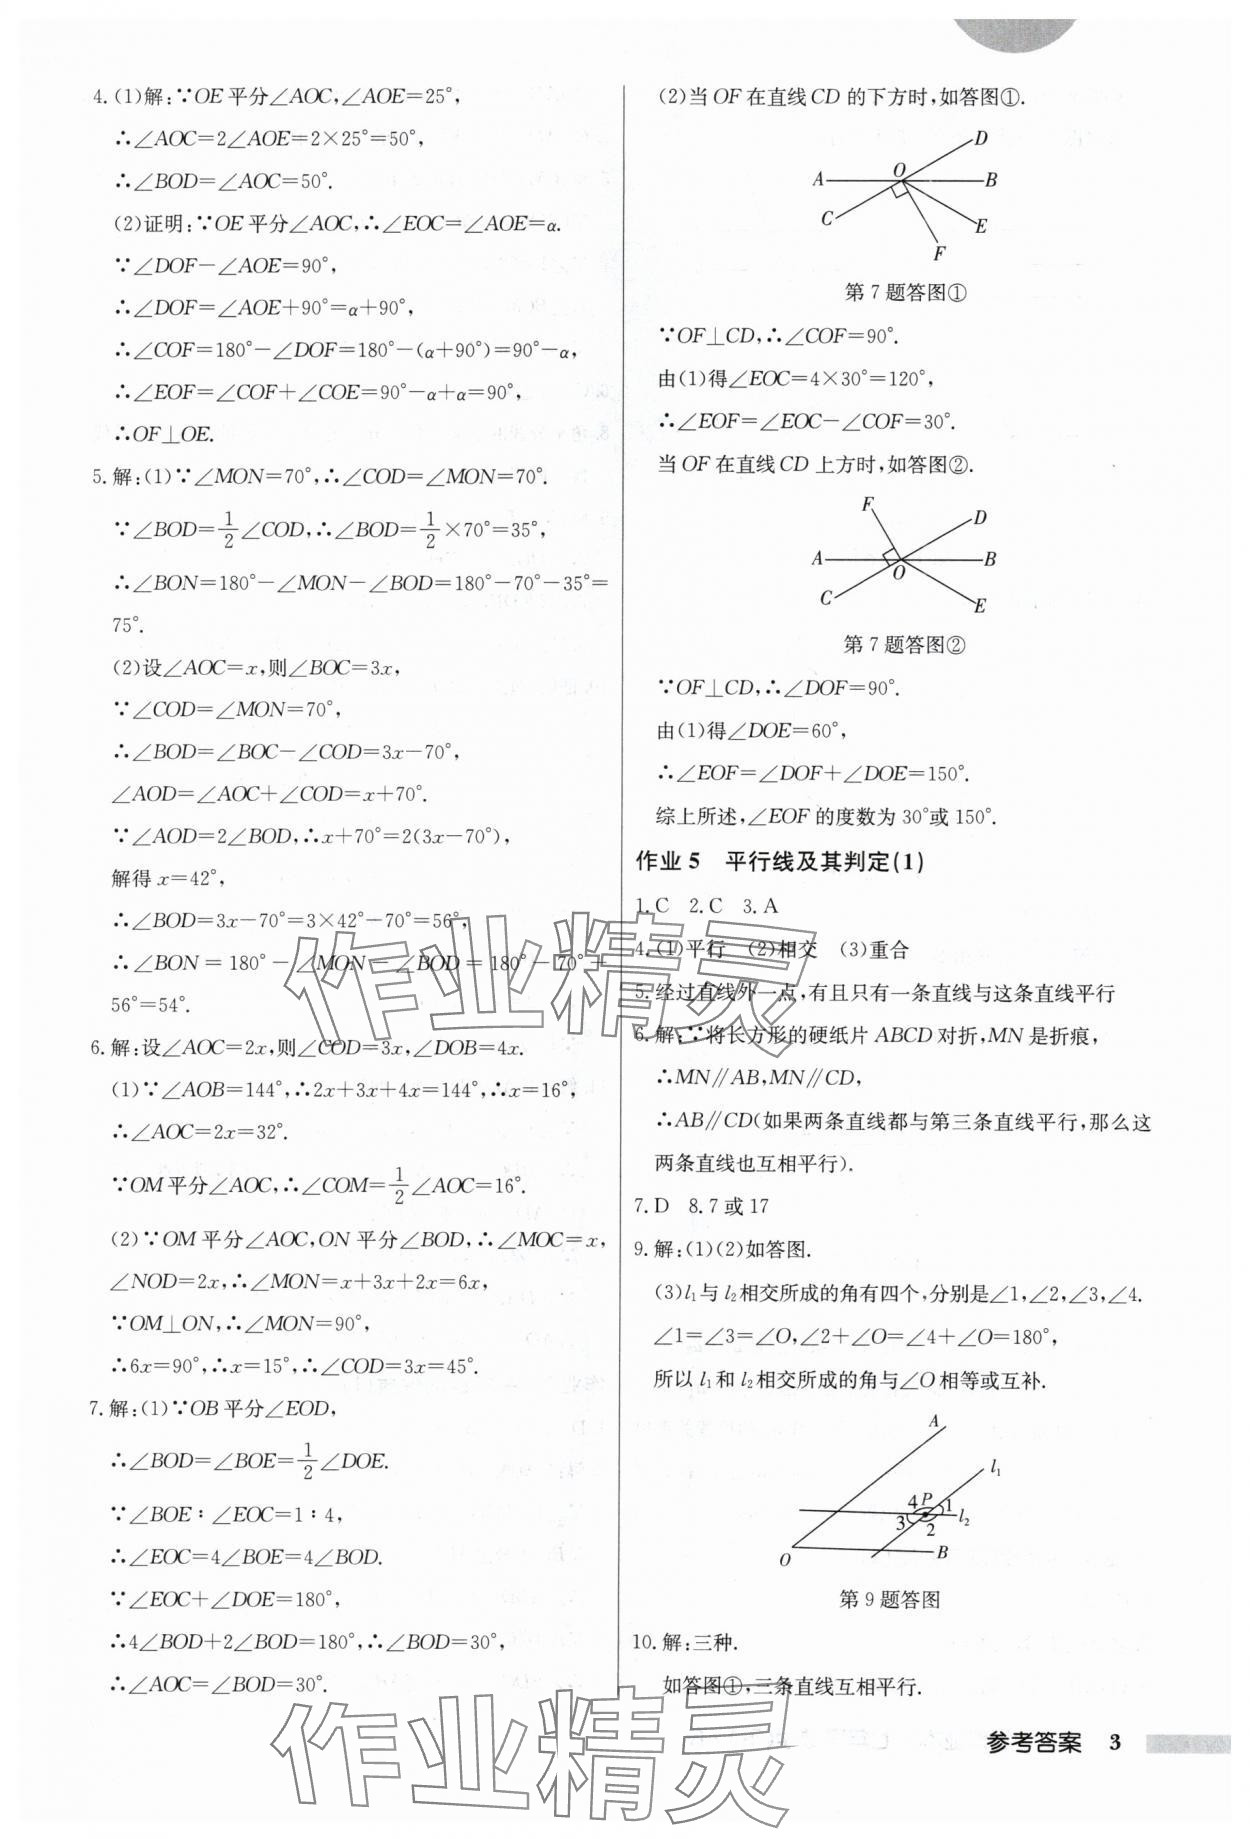 4.(1)解:∵OE平分∠AOC,∠AOE=25°,
∴∠AOC=2∠AOE=2×25°=50°,
∴∠BOD=∠AOC=50°.
(2)证明:∵OE平分∠AOC,∴∠EOC=∠AOE=α.
∵∠DOF-∠AOE=90°,
∴∠DOF=∠AOE+90°=α+90°,
∴∠COF=180°-∠DOF=180°-(α+90°)=90°-α,
∴∠EOF=∠COF+∠COE=90°-α+α=90°,
∴OF⊥OE.
5.解:(1)∵∠MON=70°,∴∠COD=∠MON=70°.
∵∠BOD=1/2∠COD,∴∠BOD=1/2×70°=35°,
∴∠BON=180°-∠MON-∠BOD=180°-70°-35°=
75°.
(2)设∠AOC=x,则∠BOC=3x,
∵∠COD=∠MON=70°,
∴∠BOD=∠BOC-∠COD=3x-70°,
∠AOD=∠AOC+∠COD=x+70°.
∵∠AOD=2∠BOD,∴x+70°=2(3x-70°),
解得x=42°,
∴∠BOD=3x-70°=3×42°-70°=56°,
∴∠BON=180°-∠MON-∠BOD=180°-70°+
56°=54°.
6.解:设∠AOC=2x,则∠COD=3x,∠DOB=4x.
(1)∵∠AOB=144°,∴2x+3x+4x=144°,∴x=16°,
∴∠AOC=2x=32°.
∵OM平分∠AOC,∴∠COM=1/2∠AOC=16°.
(2)∵OM平分∠AOC,ON平分∠BOD,∴∠MOC=x,
∠NOD=2x,∴∠MON=x+3x+2x=6x,
∵OM⊥ON,∴∠MON=90°,
∴6x=90°,∴x=15°,∴∠COD=3x=45°.
7.解:(1)∵OB平分∠EOD,
∴∠BOD=∠BOE=1/2∠DOE.
∵∠BOE:∠EOC=1:4,
∴∠EOC=4∠BOE=4∠BOD.
∵∠EOC+∠DOE=180°,
∴4∠BOD+2∠BOD=180°,∴∠BOD=30°,
∴∠AOC=∠BOD=30°.
(2)当OF在直线CD的下方时,如答图①.
D
O
A B
C E
F
第7题答图①
∵OF⊥CD,∴∠COF=90°.
由(1)得∠EOC=4×30°=120°,
∴∠EOF=∠EOC-∠COF=30°.
当OF在直线CD上方时,如答图②.
F
D
A B
O
C E
第7题答图②
∵OF⊥CD,∴∠DOF=90°.
由(1)得∠DOE=60°,
∴∠EOF=∠DOF+∠DOE=150°.
综上所述,∠EOF的度数为30°或150°.
作业5 平行线及其判定(1)
1.C 2.C 3.A
4.(1)平行 (2)相交 (3)重合
5.经过直线外一点,有且只有一条直线与这条直线平行
6.解:∵将长方形的硬纸片ABCD对折,MN是折痕,
∴MN∥AB,MN∥CD,
∴AB∥CD(如果两条直线都与第三条直线平行,那么这
两条直线也互相平行).
7.D 8.7或17
9.解:(1)(2)如答图.
(3)l₁与l₂相交所成的角有四个,分别是∠1,∠2,∠3,∠4.
∠1=∠3=∠O,∠2+∠O=∠4+∠O=180°,
所以l₁和l₂相交所成的角与∠O相等或互补.
A
l₁
4 P 1
3 2 l₂
O B
第9题答图
10.解:三种.
如答图①,三条直线互相平行.
参考答案 3
作业精灵
作业精灵